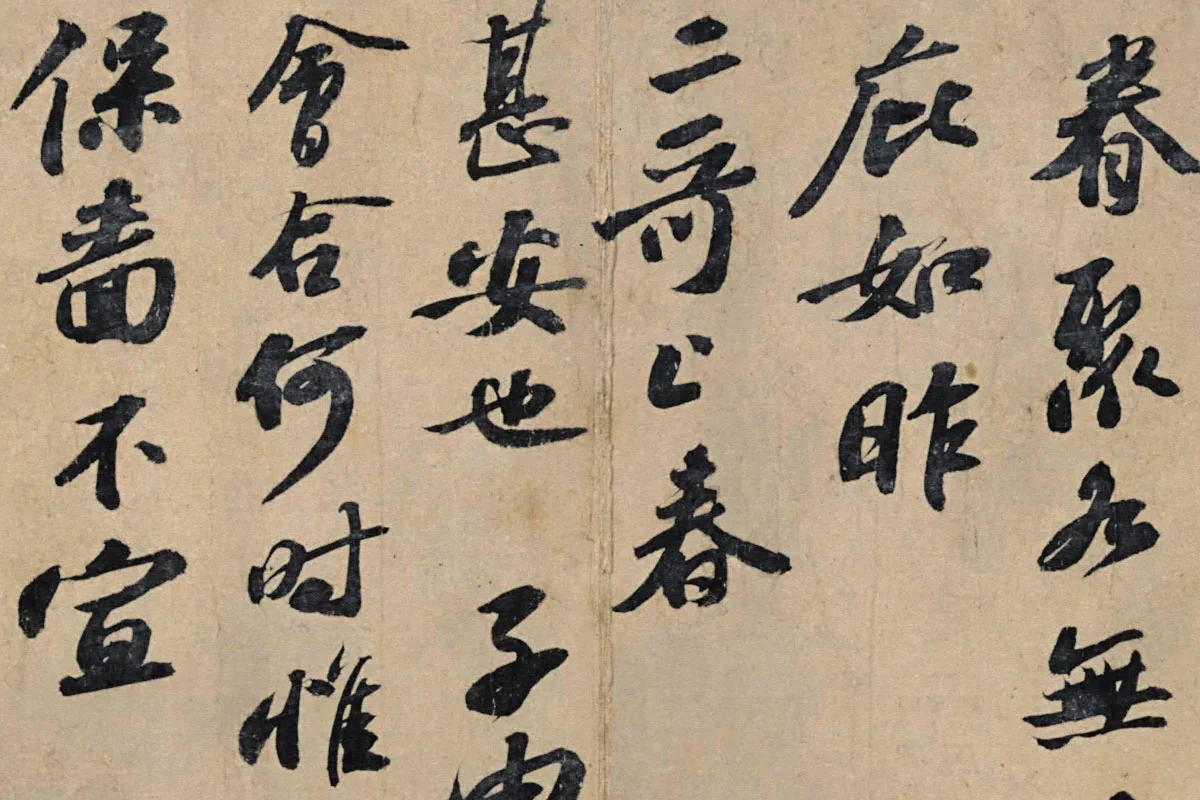 眷聚各無
庇如昨
二哥上春
甚安也子由
會合何時惟
保嗇不宣